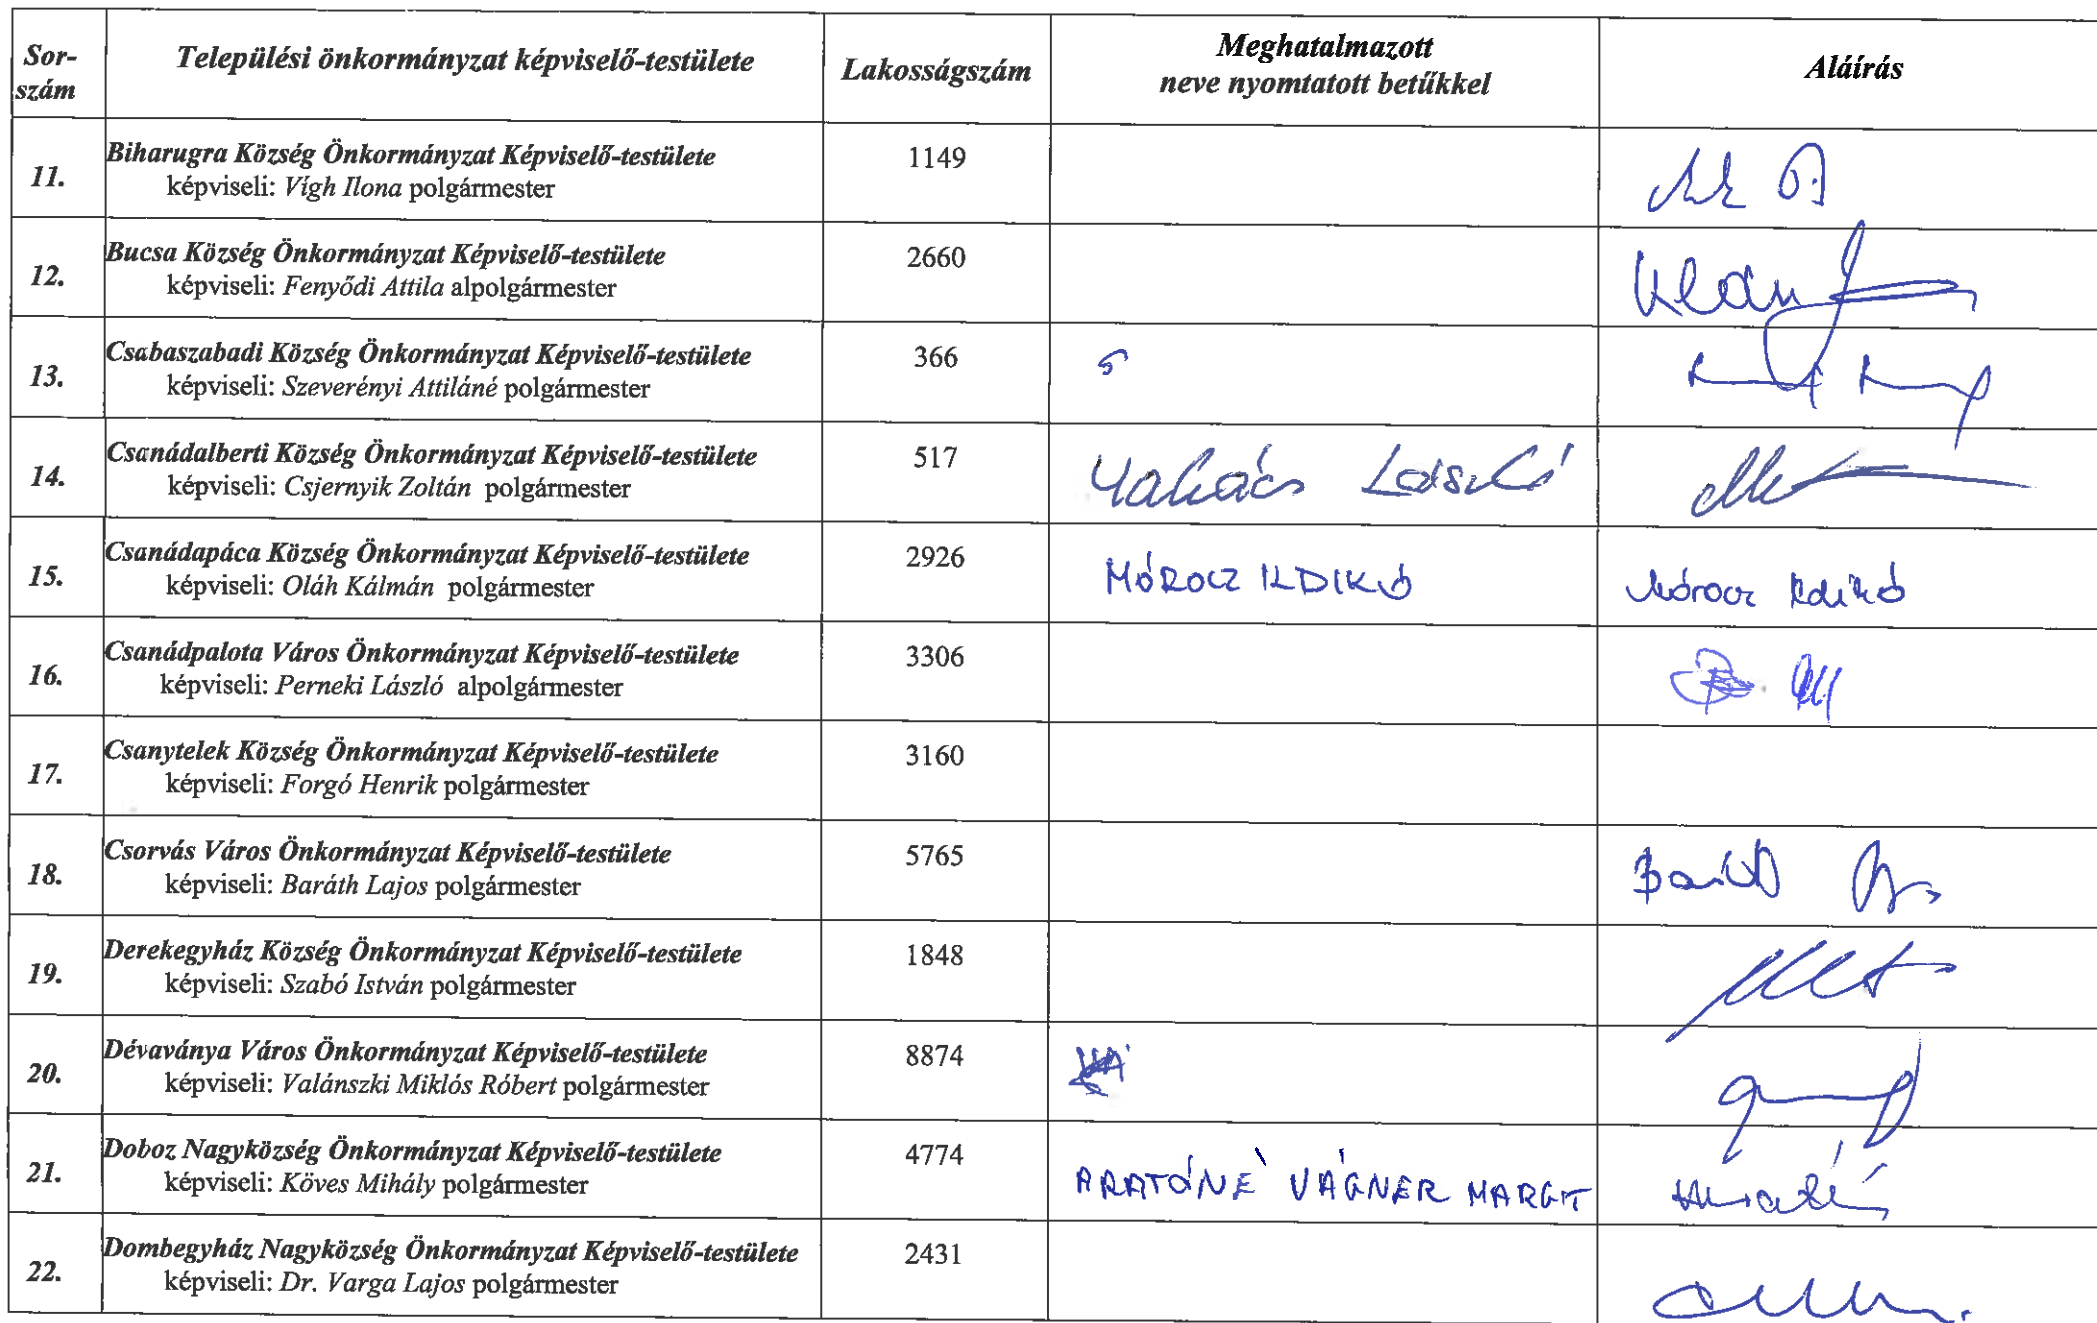 Sor-
szám
Települési önkormányzat képviselő-testülete
Lakosságszám
Meghatalmazott
neve nyomtatott betűkkel
Aláírás
11.
Biharugra Község Önkormányzat Képviselő-testülete
képviseli: Vígh Ilona polgármester
1149
12.
Bucsa Község Önkormányzat Képviselő-testülete
képviseli: Fenyődi Attila alpolgármester
2660
13.
Csabaszabadi Község Önkormányzat Képviselő-testülete
képviseli: Szeverényi Attiláné polgármester
366
14.
Csanádalberti Község Önkormányzat Képviselő-testülete
képviseli: Csjernyik Zoltán polgármester
517
Takács László
15.
Csanádapáca Község Önkormányzat Képviselő-testülete
képviseli: Oláh Kálmán polgármester
2926
MÓROCZ ILDIKÓ
Mórocz Ildikó
16.
Csanádpalota Város Önkormányzat Képviselő-testülete
képviseli: Perneki László alpolgármester
3306
17.
Csanytelek Község Önkormányzat Képviselő-testülete
képviseli: Forgó Henrik polgármester
3160
18.
Csorvás Város Önkormányzat Képviselő-testülete
képviseli: Baráth Lajos polgármester
5765
19.
Derekegyház Község Önkormányzat Képviselő-testülete
képviseli: Szabó István polgármester
1848
20.
Dévaványa Város Önkormányzat Képviselő-testülete
képviseli: Valánszki Miklós Róbert polgármester
8874
21.
Doboz Nagyközség Önkormányzat Képviselő-testülete
képviseli: Köves Mihály polgármester
4774
ARATÓNÉ VÁGNER MARGIT
22.
Dombegyház Nagyközség Önkormányzat Képviselő-testülete
képviseli: Dr. Varga Lajos polgármester
2431